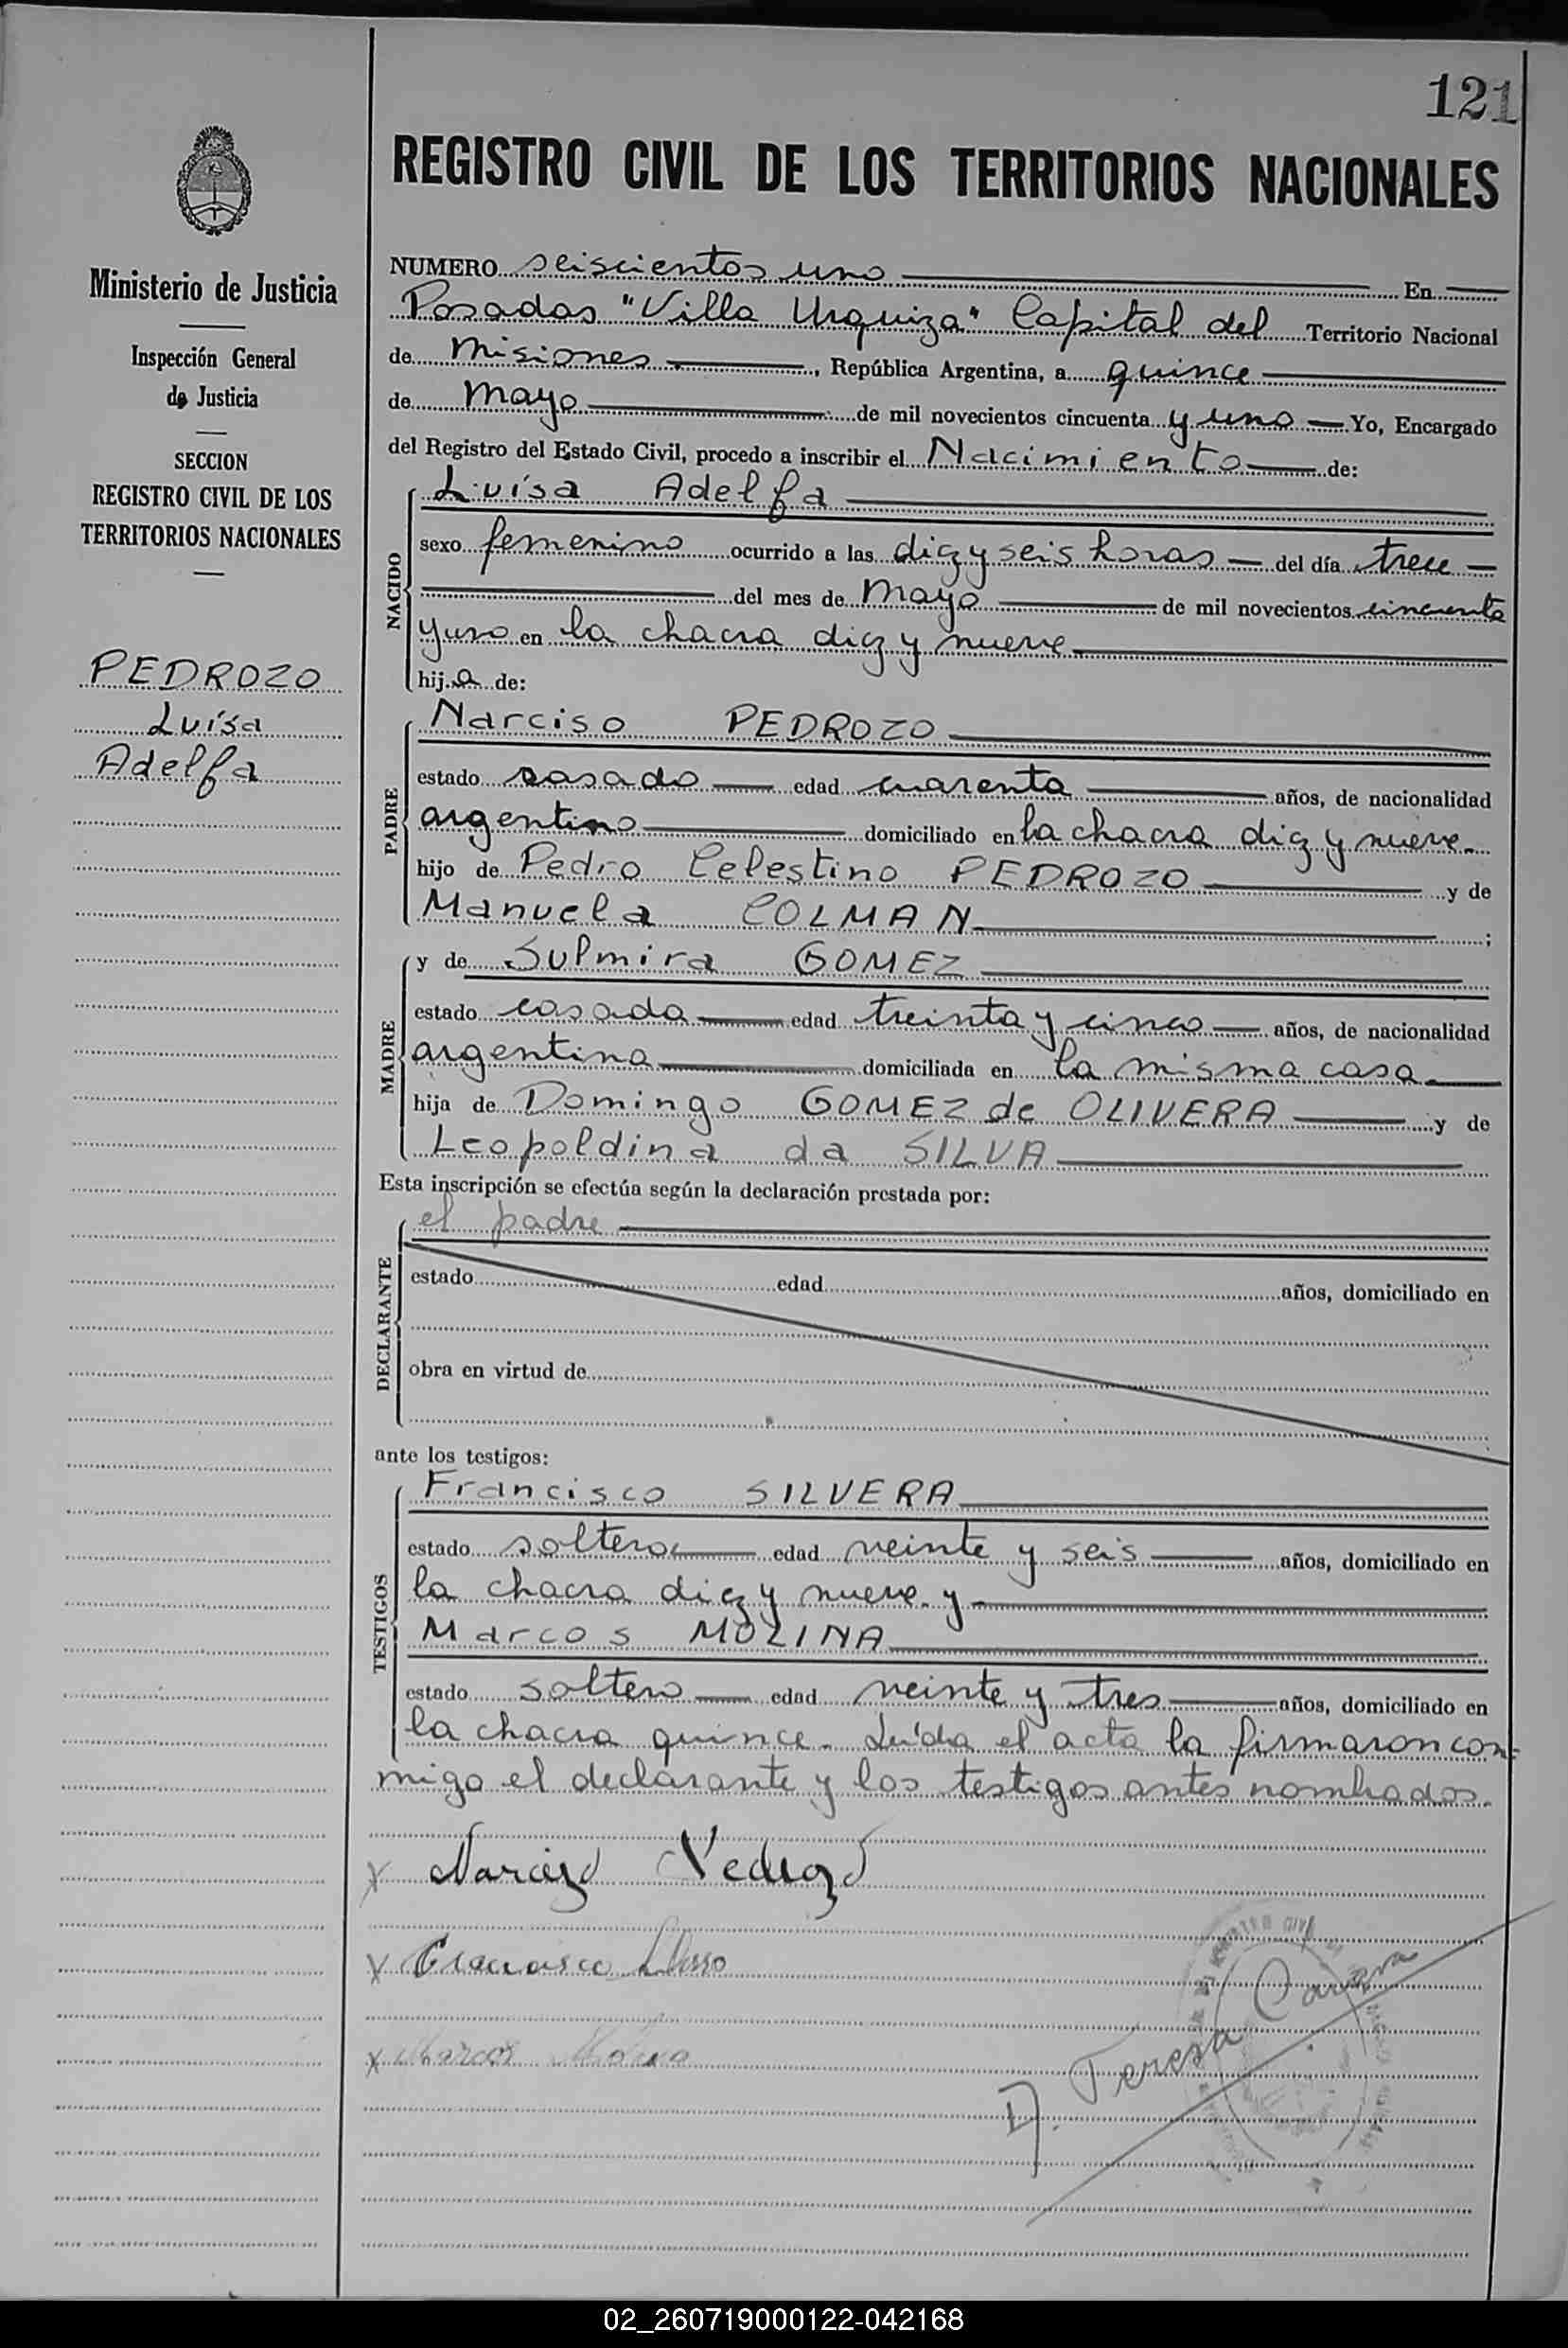 121
REGISTRO CIVIL DE LOS TERRITORIOS NACIONALES
Ministerio de Justicia
Inspección General
de Justicia
SECCION
REGISTRO CIVIL DE LOS
TERRITORIOS NACIONALES
PEDROZO
Luísa
Adelfa
NUMERO seiscientos uno En
Posadas "Villa Urquiza" Capital del Territorio Nacional
de Misiones, República Argentina, a quince
de mayo de mil novecientos cincuenta y uno Yo, Encargado
del Registro del Estado Civil, procedo a inscribir el Nacimiento de:
NACIDO
Luísa Adelfa
sexo femenino ocurrido a las diez y seis horas del día trece
del mes de mayo de mil novecientos cincuenta
y uno en la chacra diez y nueve
hija de:
PADRE
Narciso PEDROZO
estado casado edad cuarenta años, de nacionalidad
argentino domiciliado en la chacra diez y nueve
hijo de Pedro Celestino PEDROZO y de
Manuela COLMAN ;
MADRE
y de Sulmira GOMEZ
estado casada edad treinta y cinco años, de nacionalidad
argentina domiciliada en la misma casa
hija de Domingo GOMEZ de OLIVERA y de
Leopoldina da SILVA
Esta inscripción se efectúa según la declaración prestada por:
DECLARANTE
el padre
estado edad años, domiciliado en
obra en virtud de
ante los testigos:
TESTIGOS
Francisco SILVERA
estado soltero edad veinte y seis años, domiciliado en
la chacra diez y nueve y
Marcos MOLINA
estado soltero edad veinte y tres años, domiciliado en
la chacra quince. Leída el acta la firmaron con-
migo el declarante y los testigos antes nombrados.
x Narcizo Pedrozo
x Francisco
x Marcos Molina
Teresa
02_260719000122-042168